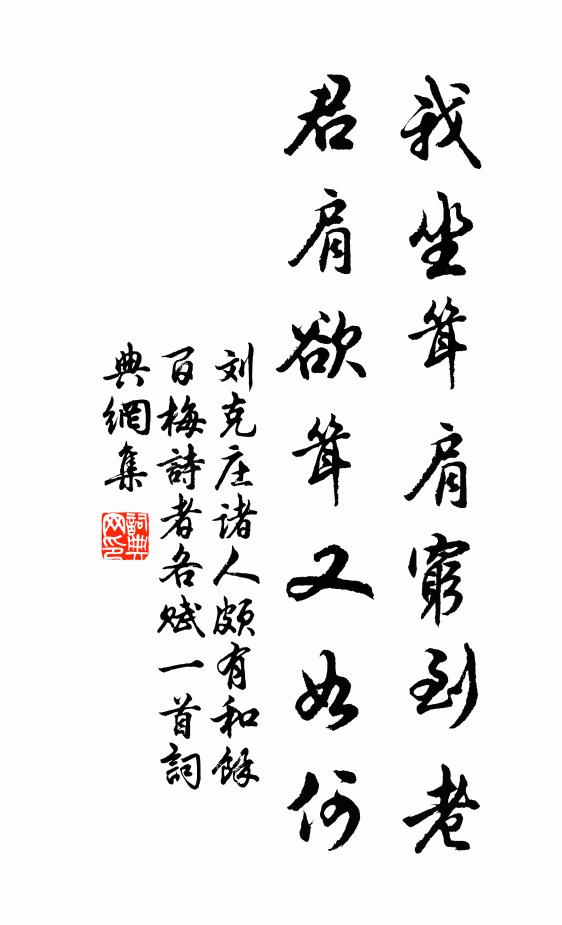 我坐耸肩窮到老
君肩欲耸又如何
刘克庄诸人頗有和餘
百梅詩者各赋一首詞
典網集
詞典网印